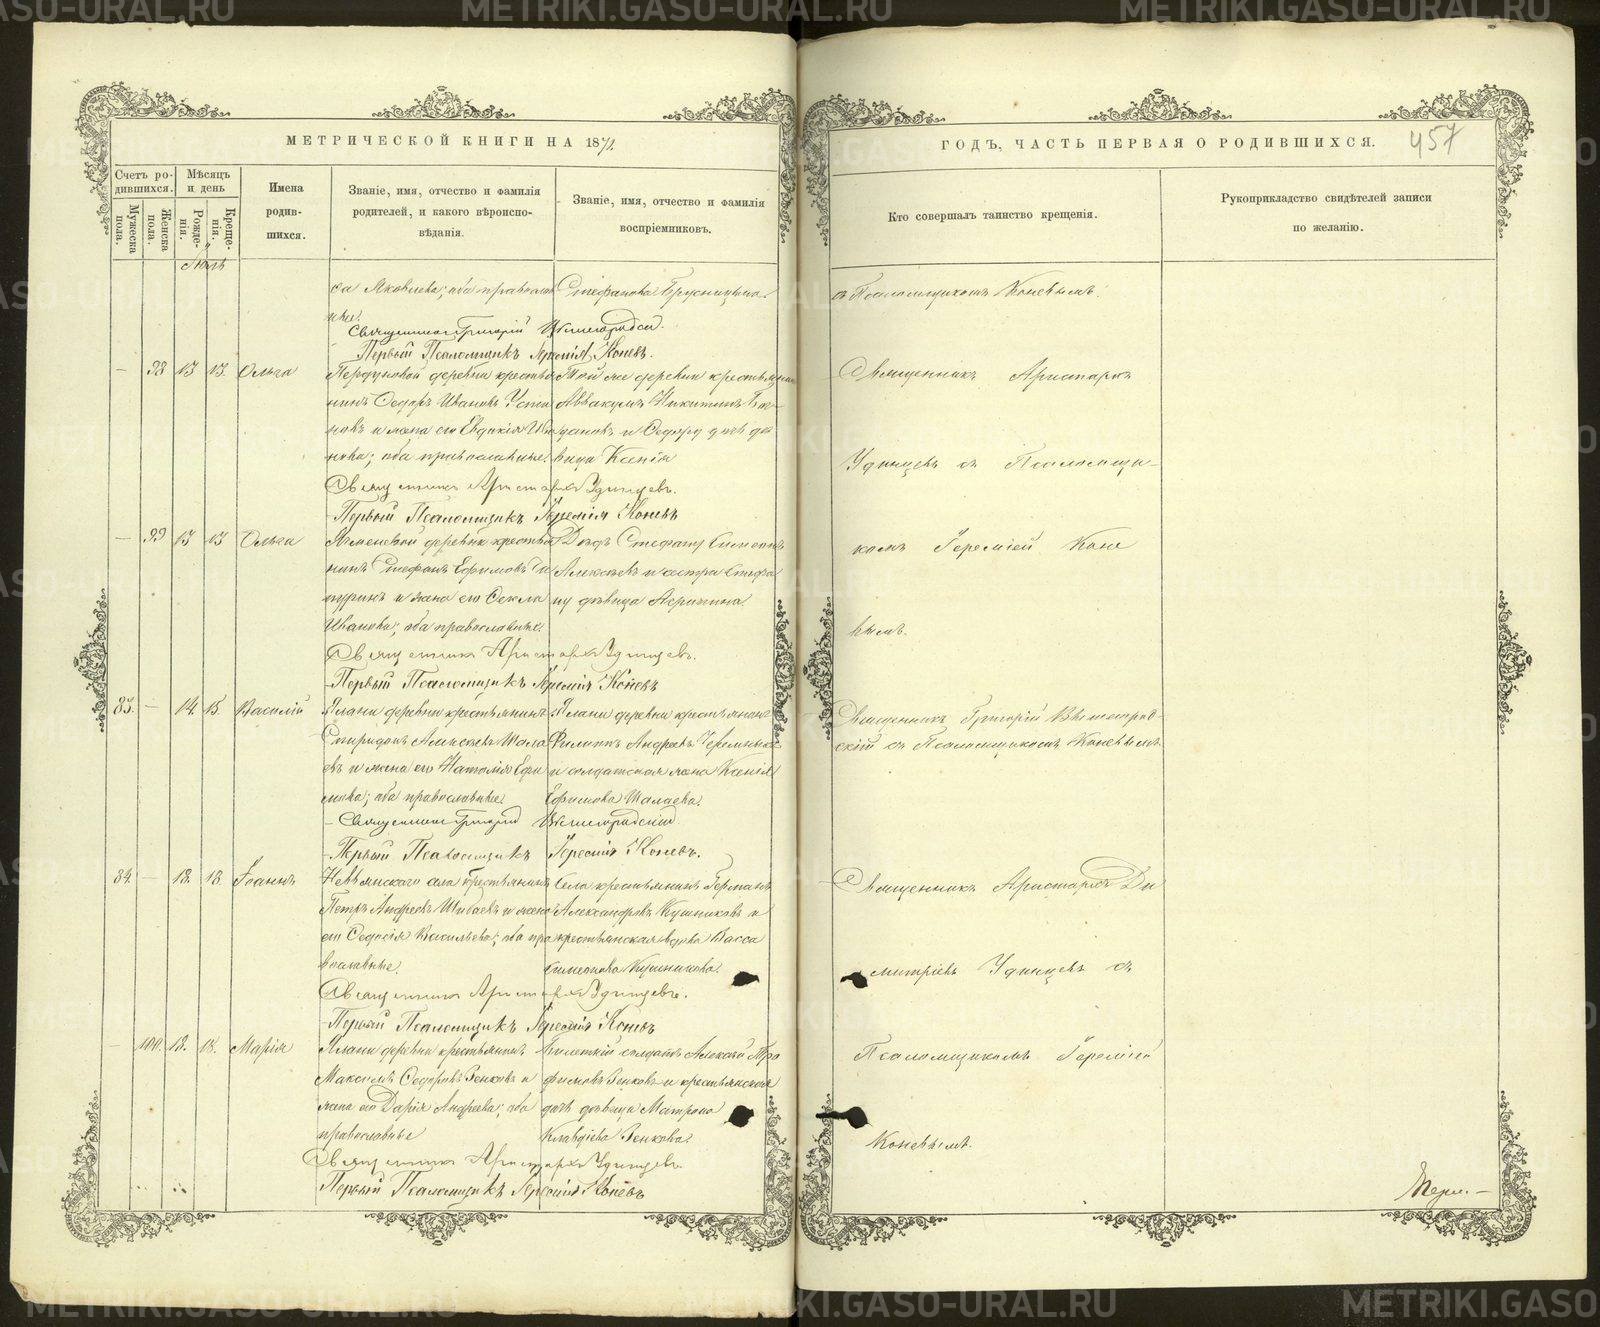 METRIKI.GASO-URAL.RU
МЕТРИЧЕСКОЙ КНИГИ НА 187
ГОДЪ, ЧАСТЬ ПЕРВАЯ О РОДИВШИХСЯ.
457
Счетъ ро-
дившихся.
Мужеска
пола.
Женска
пола.
Мѣсяцъ
и день
Рожде-
нія.
Креще-
нія.
Имена
родив-
шихся.
Званіе, имя, отчество и фамилія
родителей, и какого вѣроиспо-
вѣданія.
Званіе, имя, отчество и фамилія
воспріемниковъ.
Кто совершалъ таинство крещенія.
Рукоприкладство свидѣтелей записи
по желанію.
са Яковлева; оба православ
ные.
Стефанова Брусницына.
съ Псаломщикомъ Коневымъ.
Священникъ Григорій
Первый Псаломщикъ Іеремія Коневъ.
— 98 13 13. Ольга
деревни крестья
нинъ Ѳедоръ Ивановъ Усти
новъ и жена его Евдокія Ива
нова; оба православные.
Той же деревни крестьянинъ
Аввакумъ Никитинъ
вица Ксенія
Священникъ Аристархъ
Удинцевъ съ Псаломщи-
комъ Іереміей Коне
вымъ.
Священникъ Аристархъ Удинцевъ.
Первый Псаломщикъ Іеремія Коневъ
— 99 13 13 Ольга
деревни крестья
нинъ Стефанъ Ефимовъ
и жена его Ѳекла
Иванова; оба православные.
Алексѣевъ и сестра Стефа
ну дѣвица
Священникъ Аристархъ Удинцевъ.
Первый Псаломщикъ Іеремія Коневъ
83. — 14. 15. Василій
Ялани деревни крестьянинъ
Спиридонъ Алексѣевъ Шала
евъ и жена его Наталія Ефи
мова; оба православные.
Ялани деревни крестьянинъ
Филиппъ Андреевъ
и солдатская жена Ксенія
Ефимова Шалаева.
Священникъ Григорій
съ Псаломщикомъ Коневымъ.
Священникъ Григорій
Первый Псаломщикъ Іеремія Коневъ.
84. — 18. 18. Іоаннъ
Невьянскаго села крестьянинъ
Петръ Андреевъ Шибаевъ и жена
его Ѳедосія Васильева; оба пра
вославные.
Села крестьянинъ Германъ
Александровъ Кушниковъ и
крестьянская вдова Васса
Симеонова Кушникова.
Священникъ Аристархъ Ди
митріевъ Удинцевъ съ
Псаломщикомъ Іереміей
Коневымъ.
Священникъ Аристархъ Удинцевъ.
Первый Псаломщикъ Іеремія Коневъ
— 100 18. 18. Марія
Ялани деревни крестьянинъ
Максимъ Ѳедоровъ Зенковъ и
жена его Дарія Андреева; оба
православные
Билетный солдатъ Алексѣй Тро
фимовъ Зенковъ и крестьянская
дочь дѣвица Матрона
Клавдіева Зенкова.
Священникъ Аристархъ Удинцевъ.
Первый Псаломщикъ Іеремія Коневъ